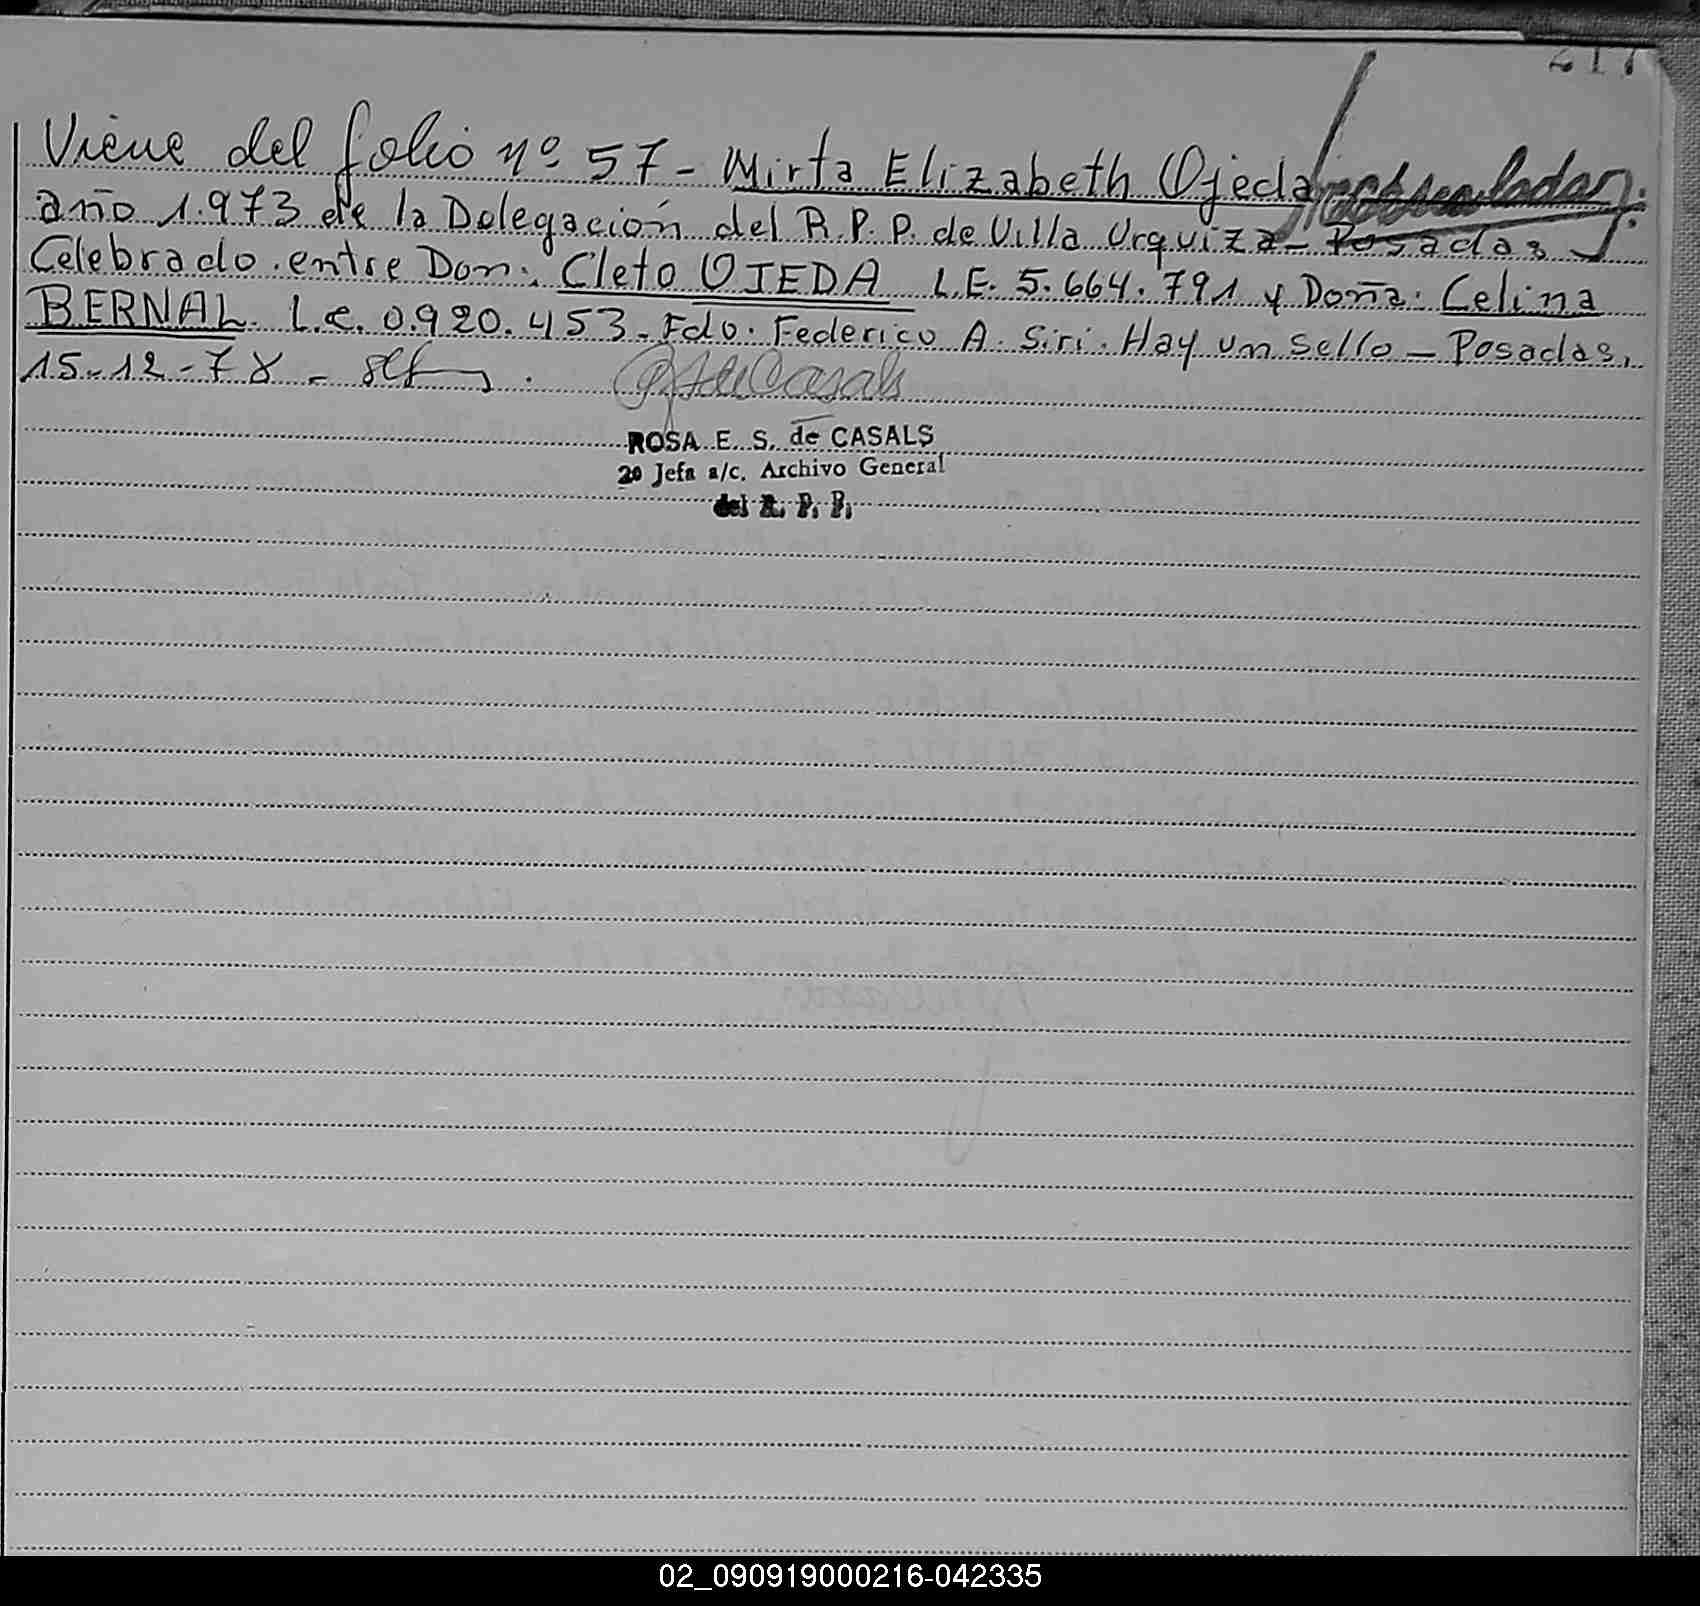 217
Viene del folio nº 57 - Mirta Elizabeth Ojeda
año 1.973 de la Delegación del R.P.P. de Villa Urquiza - Posadas
Celebrado entre Don: Cleto OJEDA L.E. 5.664.791 y Doña: Celina
BERNAL. L.C. 0.920.453 - Fdo. Federico A. Siri. Hay un sello - Posadas,
15-12-78 -
ROSA E. S. de CASALS
2º Jefa a/c. Archivo General
del R. P. P.
02_090919000216-042335